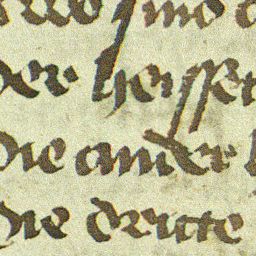 sind
der heisset
die ander
die dritte